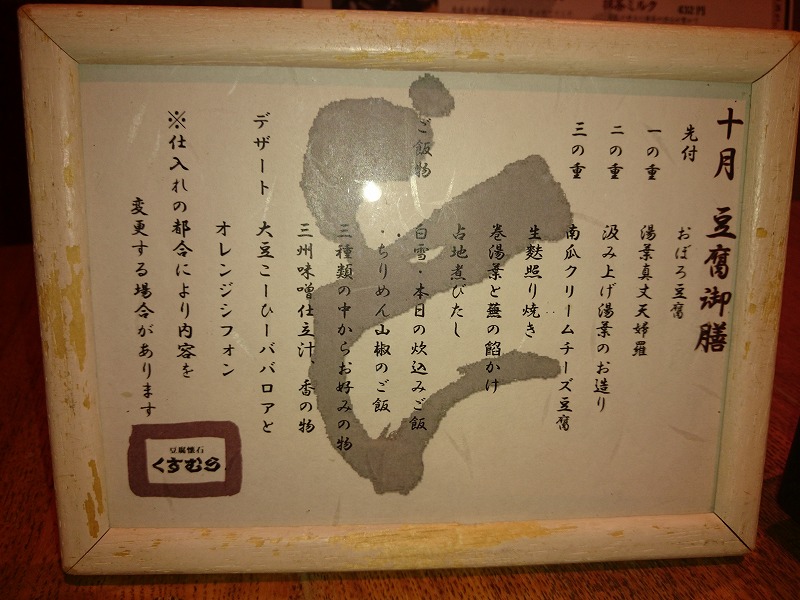 十月 豆腐御膳
先付 おぼろ豆腐
一の重 湯葉真丈天婦羅
二の重 汲み上げ湯葉のお造り
三の重 南瓜クリームチーズ豆腐
生麩照り焼き
巻湯葉と蕪の餡かけ
占地煮びたし
ご飯物 白雪・本日の炊込みご飯
・ちりめん山椒のご飯
三種類の中からお好みの物
三州味噌仕立汁、香の物
デザート 大豆こーひーババロアと
オレンジシフォン
※仕入れの都合により内容を
変更する場合があります
豆腐懐石
くすむら
抹茶ミルク 432円